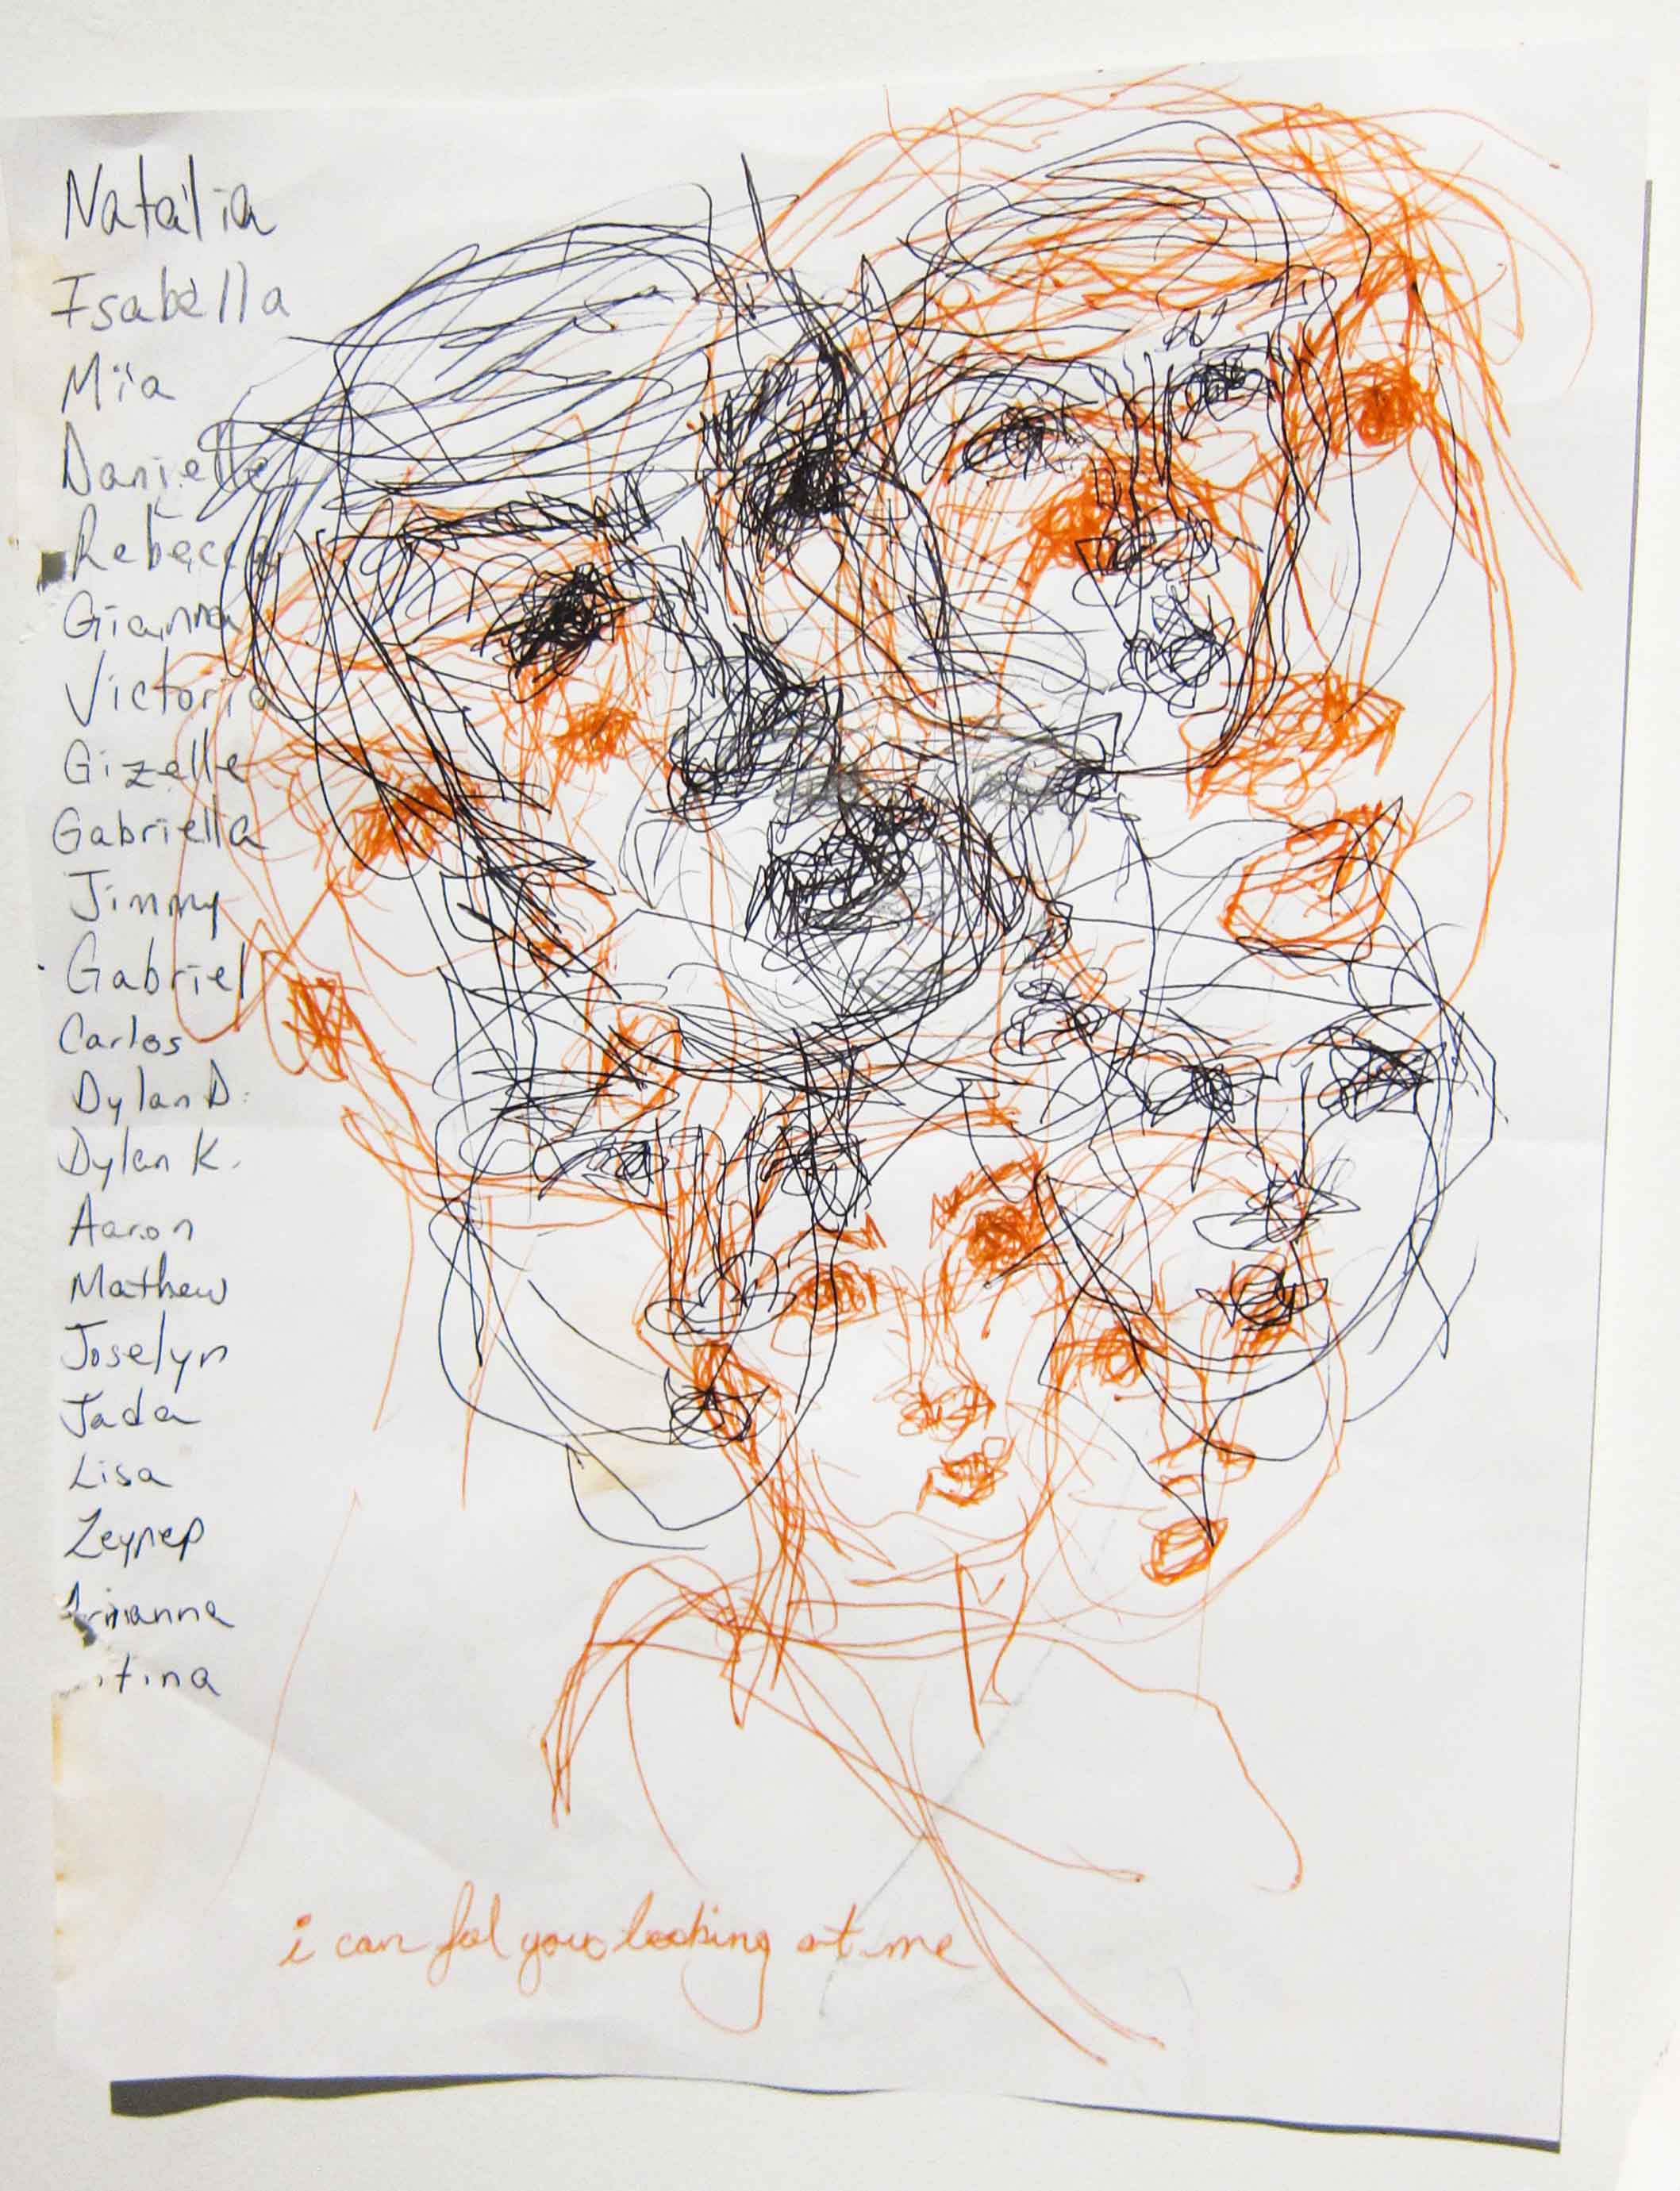 Natalia
Isabella
Mia
Danielle
Rebecca
Gianna
Victoria
Gizelle
Gabriella
Jimmy
Gabriel
Carlos
Dylan D.
Dylan K.
Aaron
Mathew
Joselyn
Jada
Lisa
Zeynep
i can feel you looking at me